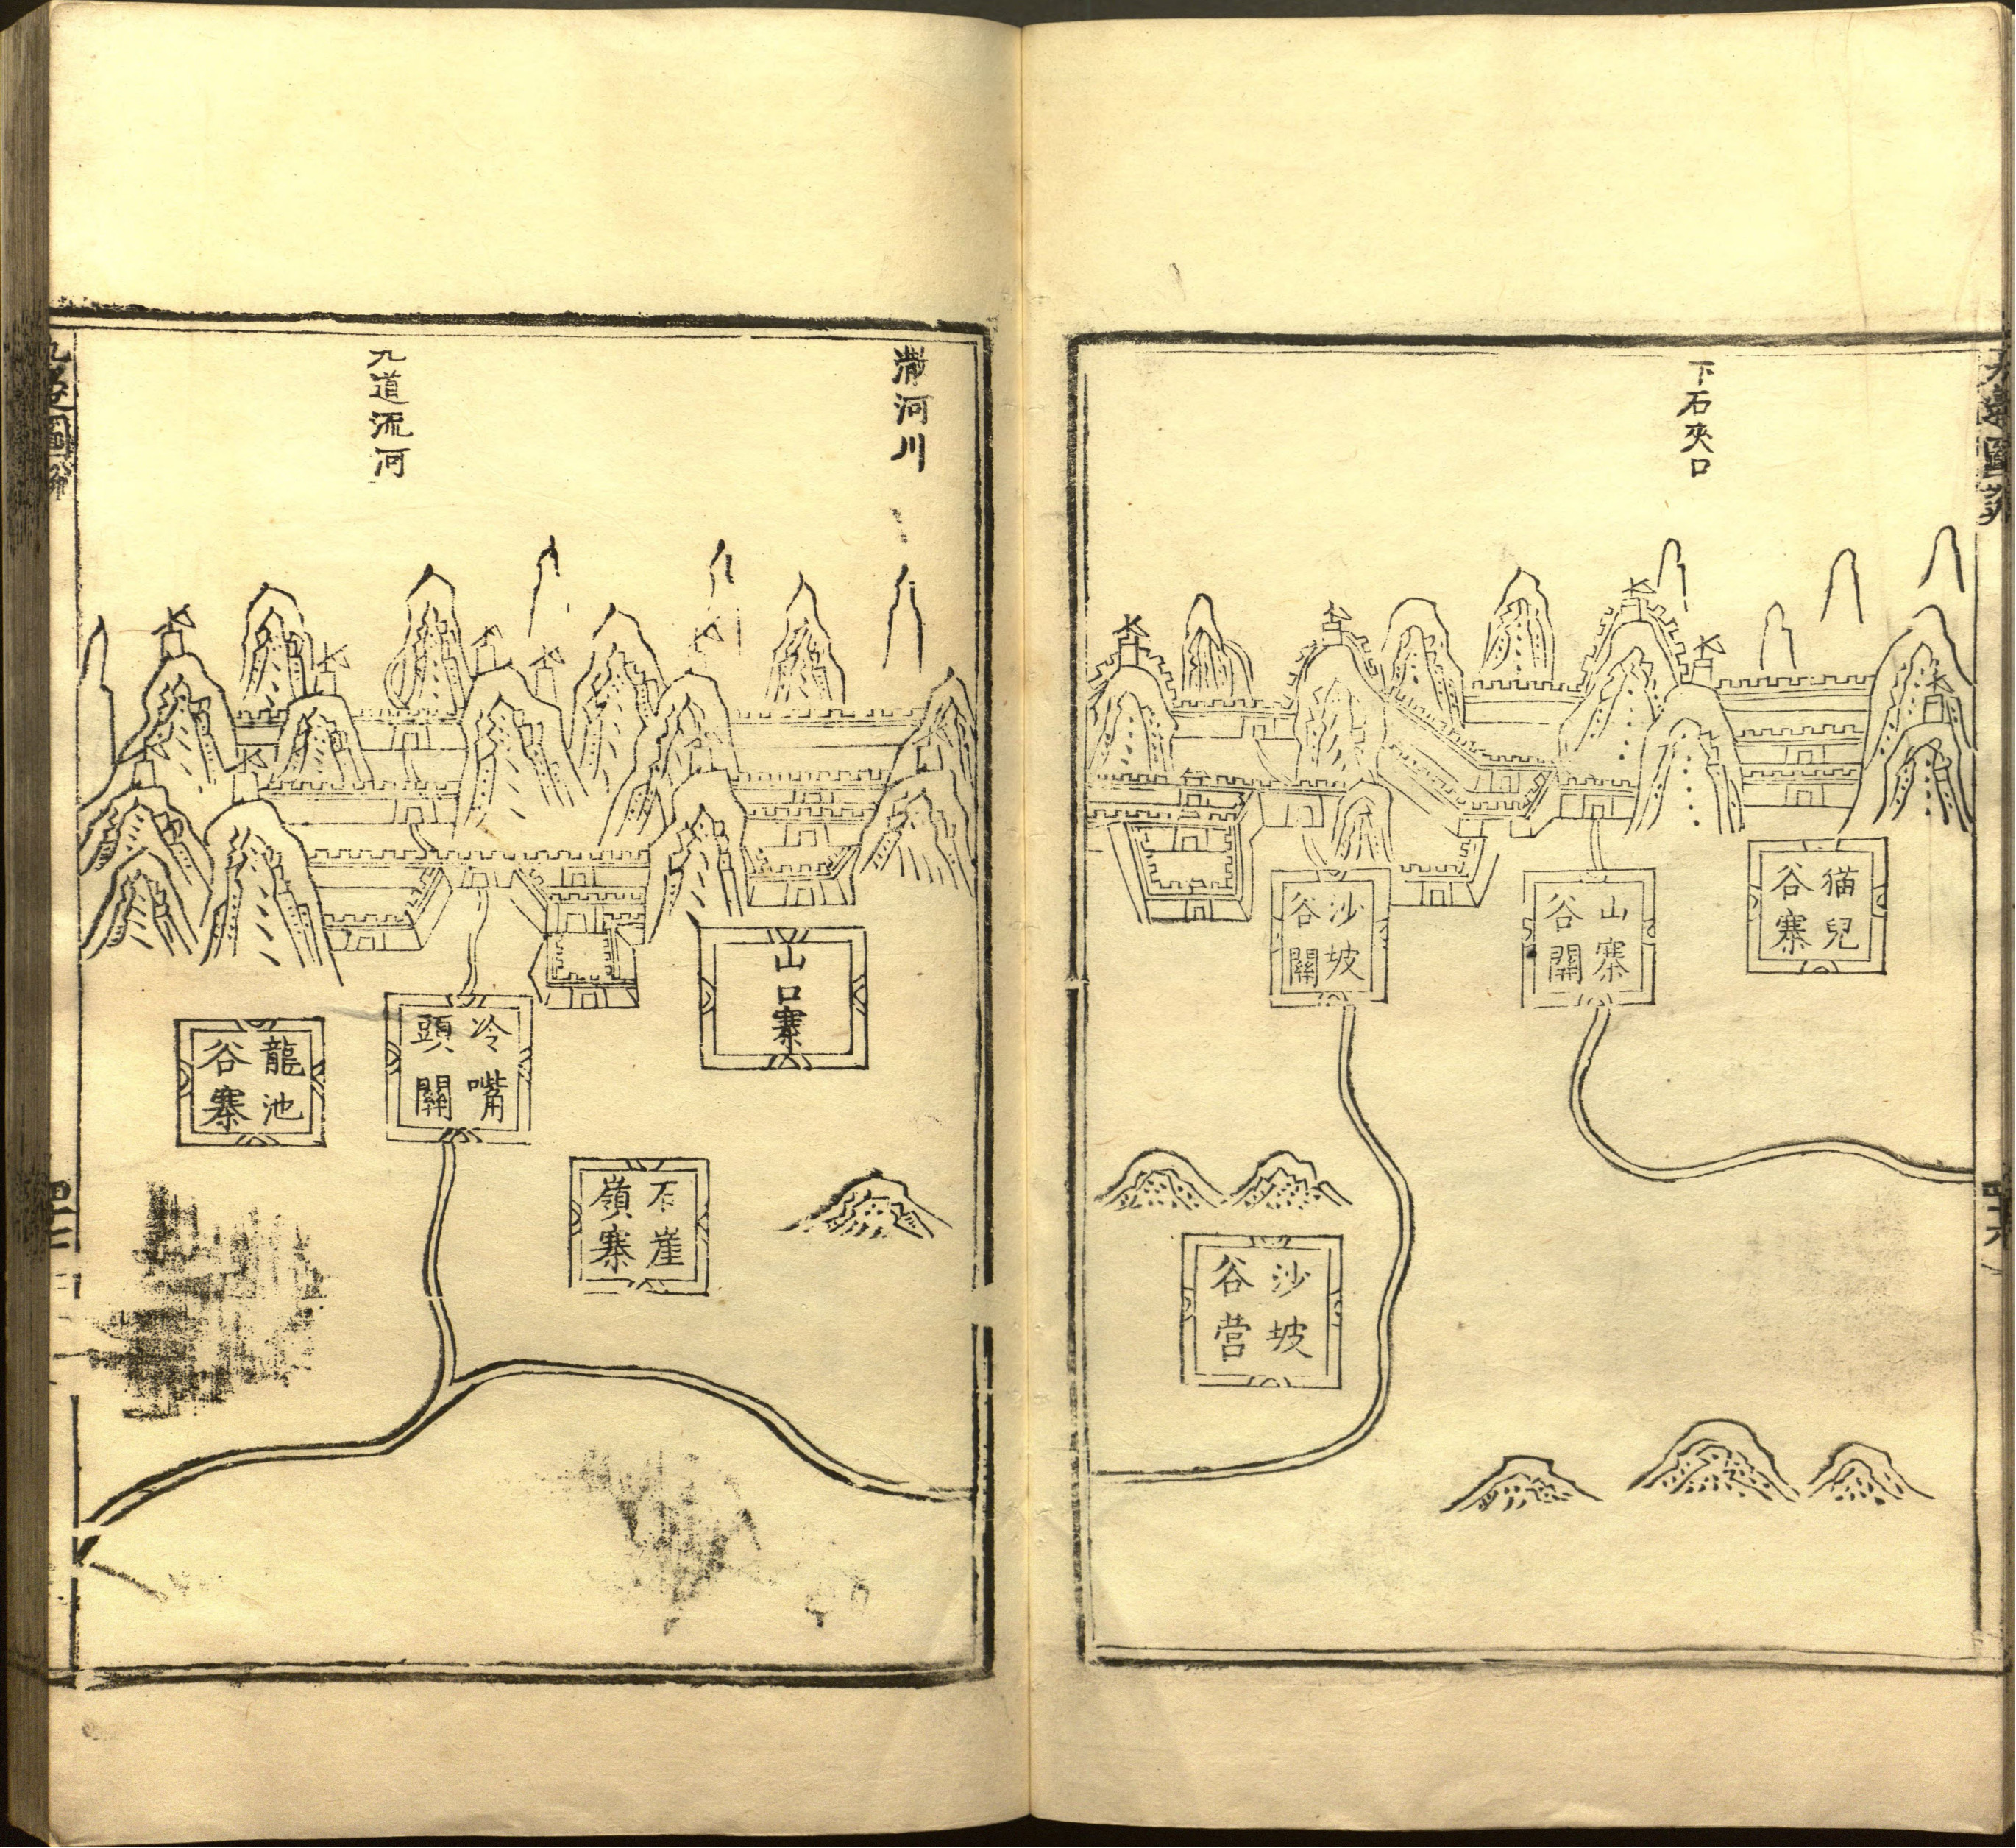 下石夾口
猫兒
谷寨
山寨
谷關
沙坡
谷關
沙坡
谷营
河川
山口寨
石崖
嶺寨
九道流河
冷嘴
頭關
龍池
谷寨